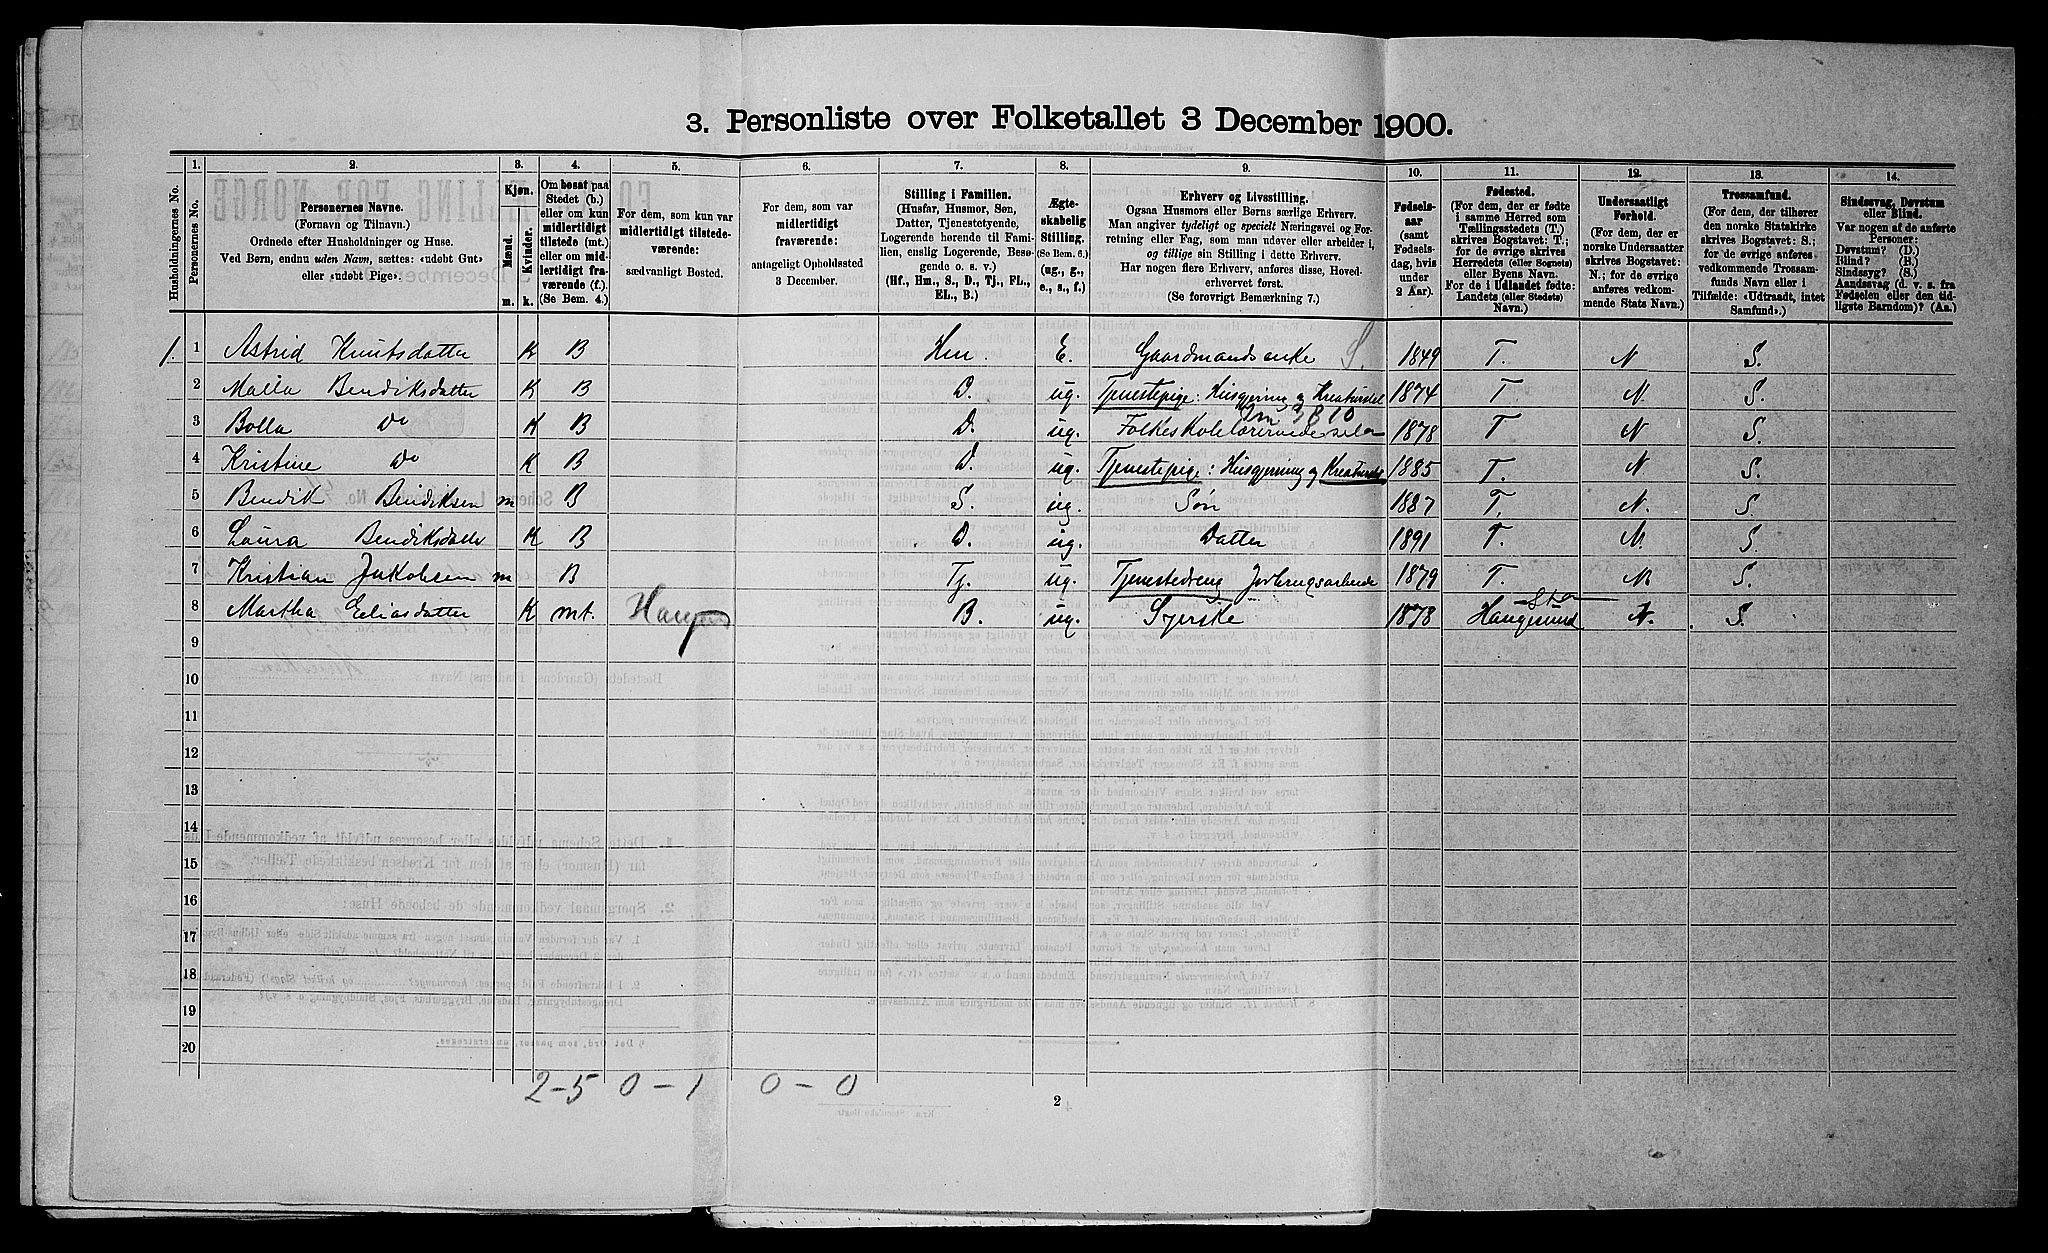 3. Personliste over Folketallet 3 December 1900.
Husholdningernes No.
1.
Personernes No.
2.
Personernes Navne.
(Fornavn og Tilnavn.)
Ordnede efter Husholdninger og Huse.
Ved Børn, endnu uden Navn, sættes: «udøbt Gut»
eller «udøbt Pige».
3.
Kjøn.
Mænd.
Kvinder.
m. k.
4.
Om bosat paa
Stedet (b.)
eller om kun
midlertidigt
tilstede (mt.)
eller om mid-
lertidigt fra-
værende (f.).
(Se Bem. 4.)
5.
For dem, som kun var
midlertidigt tilstede-
værende:
sædvanligt Bosted.
6.
For dem, som var
midlertidigt
fraværende:
antageligt Opholdssted
3 December.
7.
Stilling i Familien.
(Husfar, Husmor, Søn,
Datter, Tjenestetyende,
Logerende hørende til Fami-
lien, enslig Logerende, Besø-
gende o. s. v.)
(Hf., Hm., S., D., Tj., FL.,
EL., B.)
8.
Ægte-
skabelig
Stilling.
(Se Bem. 6.)
(ug., g.,
e., s., f.)
9.
Erhverv og Livsstilling.
Ogsaa Husmors eller Børns særlige Erhverv.
Man angiver tydeligt og specielt Næringsvei og For-
retning eller Fag, som man udøver eller arbeider i,
og tillige sin Stilling i dette Erhverv.
Har nogen flere Erhverv, anføres disse, Hoved-
erhvervet først.
(Se forøvrigt Bemærkning 7.)
10.
Fødsels-
aar
(samt
Fødsels-
dag, hvis
under
2 Aar).
11.
Fødested.
(For dem, der er fødte
i samme Herred som
Tællingsstedets (T.)
skrives Bogstavet: T.;
for de øvrige skrives
Herredets (eller Sognets)
eller Byens Navn.
For de i Udlandet fødte:
Landets (eller Stedets)
Navn.)
12.
Undersaatligt
Forhold.
(For dem, der er
norske Undersaatter
skrives Bogstavet:
N.; for de øvrige
anføres vedkom-
mende Stats Navn.)
13.
Trossamfund.
(For dem, der tilhører
den norske Statskirke
skrives Bogstavet: S.;
for de øvrige anføres
vedkommende Trossam-
funds Navn eller i
Tilfælde: «Udtraadt, intet
Samfund».)
14.
Sindssvag, Døvstum
eller Blind.
Var nogen af de anførte
Personer:
Døvstum? (D.)
Blind? (B.)
Sindssyg? (S.)
Aandssvag (d. v. s. fra
Fødselen eller den tid-
ligste Barndom)? (Aa.)
1. 1 Astrid Knutsdatter K B Hm. E. Gaardmandsenke S. 1849 T. N S.
2 Malla Bendiksdatter K B D. ug. Tjenestepige: Husgjerning og Kreaturstel 1874 T N. S.
3 Bolla Do K B D. ug. Folkeskolelærerinde 1878 T N S.
4 Kristine Do K B D. ug. Tjenestepige: Husgjerning og Kreaturstel 1885 T. N S.
5 Bendik Bendiksen m B S. ug. Søn 1887 T. N. S.
6 Laura Bendiksdatter K B D. ug. Datter 1891 T. N. S.
7 Kristian Jakobsen m B Tj. ug. Tjenestedreng Jordbrugsarbeide 1879 T. N S.
8 Martha Eliasdatter K mt. B. ug. Syerske 1878 Haugesund N. S.
9
10
11
12
13
14
15
16
17
18
19
20
2-5 0-1 0-0
2